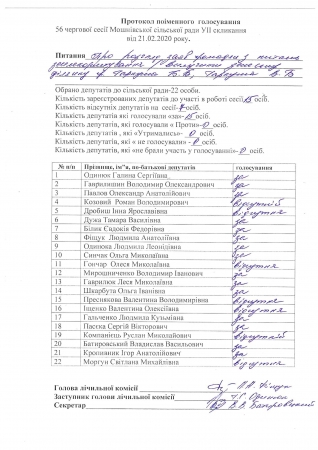 Протокол поіменного голосування
56 чергової сесії Мошнівської сільської ради УІІ скликання
від 21.02.2020 року.
Питання Про розгляд заяв громадян з питань
землекористування /
ділянку
Обрано депутатів до сільської ради-22 особи.
Кількість зареєстрованих депутатів до участі в роботі сесії 15 осіб.
Кількість відсутніх депутатів на сесії 7 осіб
Кількість депутатів, які голосували «за»- 15 осіб
Кількість депутатів, які голосували « Проти»- 0 осіб
Кількість депутатів , які «Утримались»- 0 осіб.
Кількість депутатів, які « не голосували»- 0 осіб.
Кількість депутатів, які «не брали участь у голосуванні»- 0 осіб.
№ п/п Прізвище, ім"я, по-батькові депутатів голосування
1 Одинюк Галина Сергіївна, за
2 Гаврилишин Володимир Олександрович за
3 Павлов Олександр Анатолійович за
4 Козовий Роман Володимирович відсутній
5 Дробиш Інна Ярославівна відсутня
6 Дужа Тамара Василівна за
7 Білик Євдокія Федорівна за
8 Фіщук Людмила Анатоліївна за
9 Одинова Людмила Леонідівна за
10 Синчак Ольга Миколаївна за
11 Гончар Олеся Миколаївна відсутня
12 Мирошниченко Володимир Іванович за
13 Гаврилюк Леся Миколаївна за
14 Шкарбута Ольга Іванівна за
15 Преснякова Валентина Володимирівна відсутня
16 Іщенко Валентина Олексіївна відсутня
17 Гальченко Людмила Кузьмівна за
18 Пасєка Сергій Вікторович за
19 Компанієць Руслан Миколайович відсутній
20 Батировський Владислав Васильович за
21 Кропивник Ігор Анатолійович за
22 Моргун Світлана Михайлівна відсутня
Голова лічильної комісії Л.А. Фіщук
Заступник голови лічильної комісії
Секретар